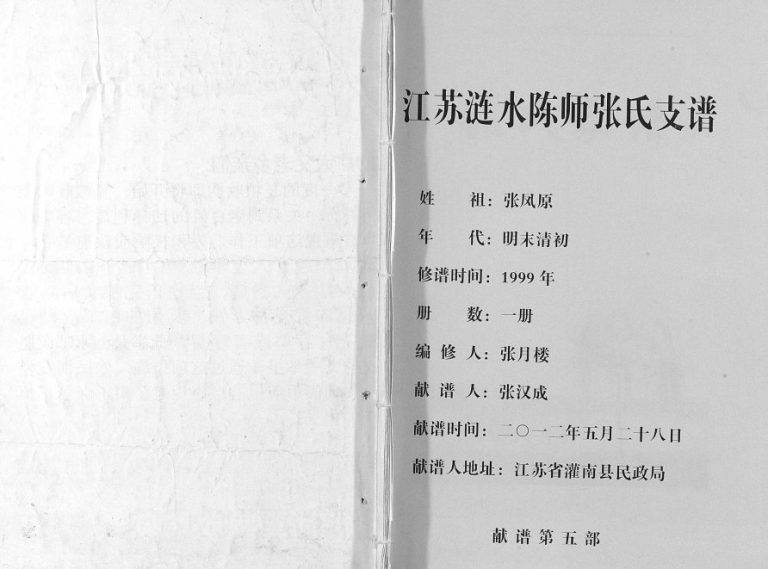 江苏涟水陈师张氏支谱
姓 祖：张凤原
年 代：明末清初
修谱时间：1999 年
册 数：一册
编 修 人：张月楼
献 谱 人：张汉成
献谱时间：二〇一二年五月二十八日
献谱人地址：江苏省灌南县民政局
献谱第五部